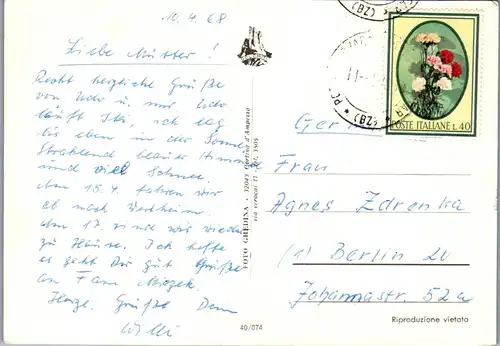 10.4.68
Liebe Mutter!
Recht herzliche Grüße
von Udo u. mir Udo
läuft Ski, ich lag
bis eben in der Sonne
Strahlend blauer Himmel
und viel Schnee
Am 15.4 fahren wir
ab nach Wertheim.
Am 17. sind wir wieder
zu Hause. Ich hoffe
es geht Dir gut Grüße
an Fam
Herzl. Grüße Dein
Willi
40/074
FOTO GHEDINA • 32043 Cortina d'Ampezzo
via verocai 11 - tel. 3505
(BZ)
(BZ)
POSTE ITALIANE L.40
Germ
Frau
Agnes Zdrenka
(1) Berlin 20
Johannastr. 52a
Riproduzione vietata